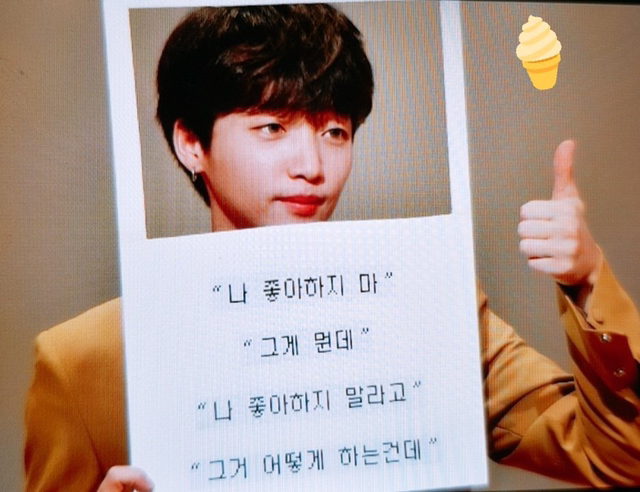 “나 좋아하지 마”
“그게 뭔데”
“나 좋아하지 말라고”
“그거 어떻게 하는건데”